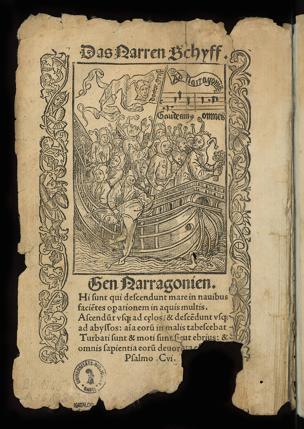 Das Narren Schyff.
Ad Narragoniā
Gaudeamus omnes
Gen Narragonien.
Hi sunt qui descendunt mare in nauibus
faciētes opationem in aquis multis.
Ascendūt vsq; ad cęlos: & descēdunt vsq;
ad abyssos: aīa eorū in malis tabescebat
Turbati sunt & moti sunt sicut ebrius: &
omnis sapientia eorū deuorata
Psalmo .Cvi.